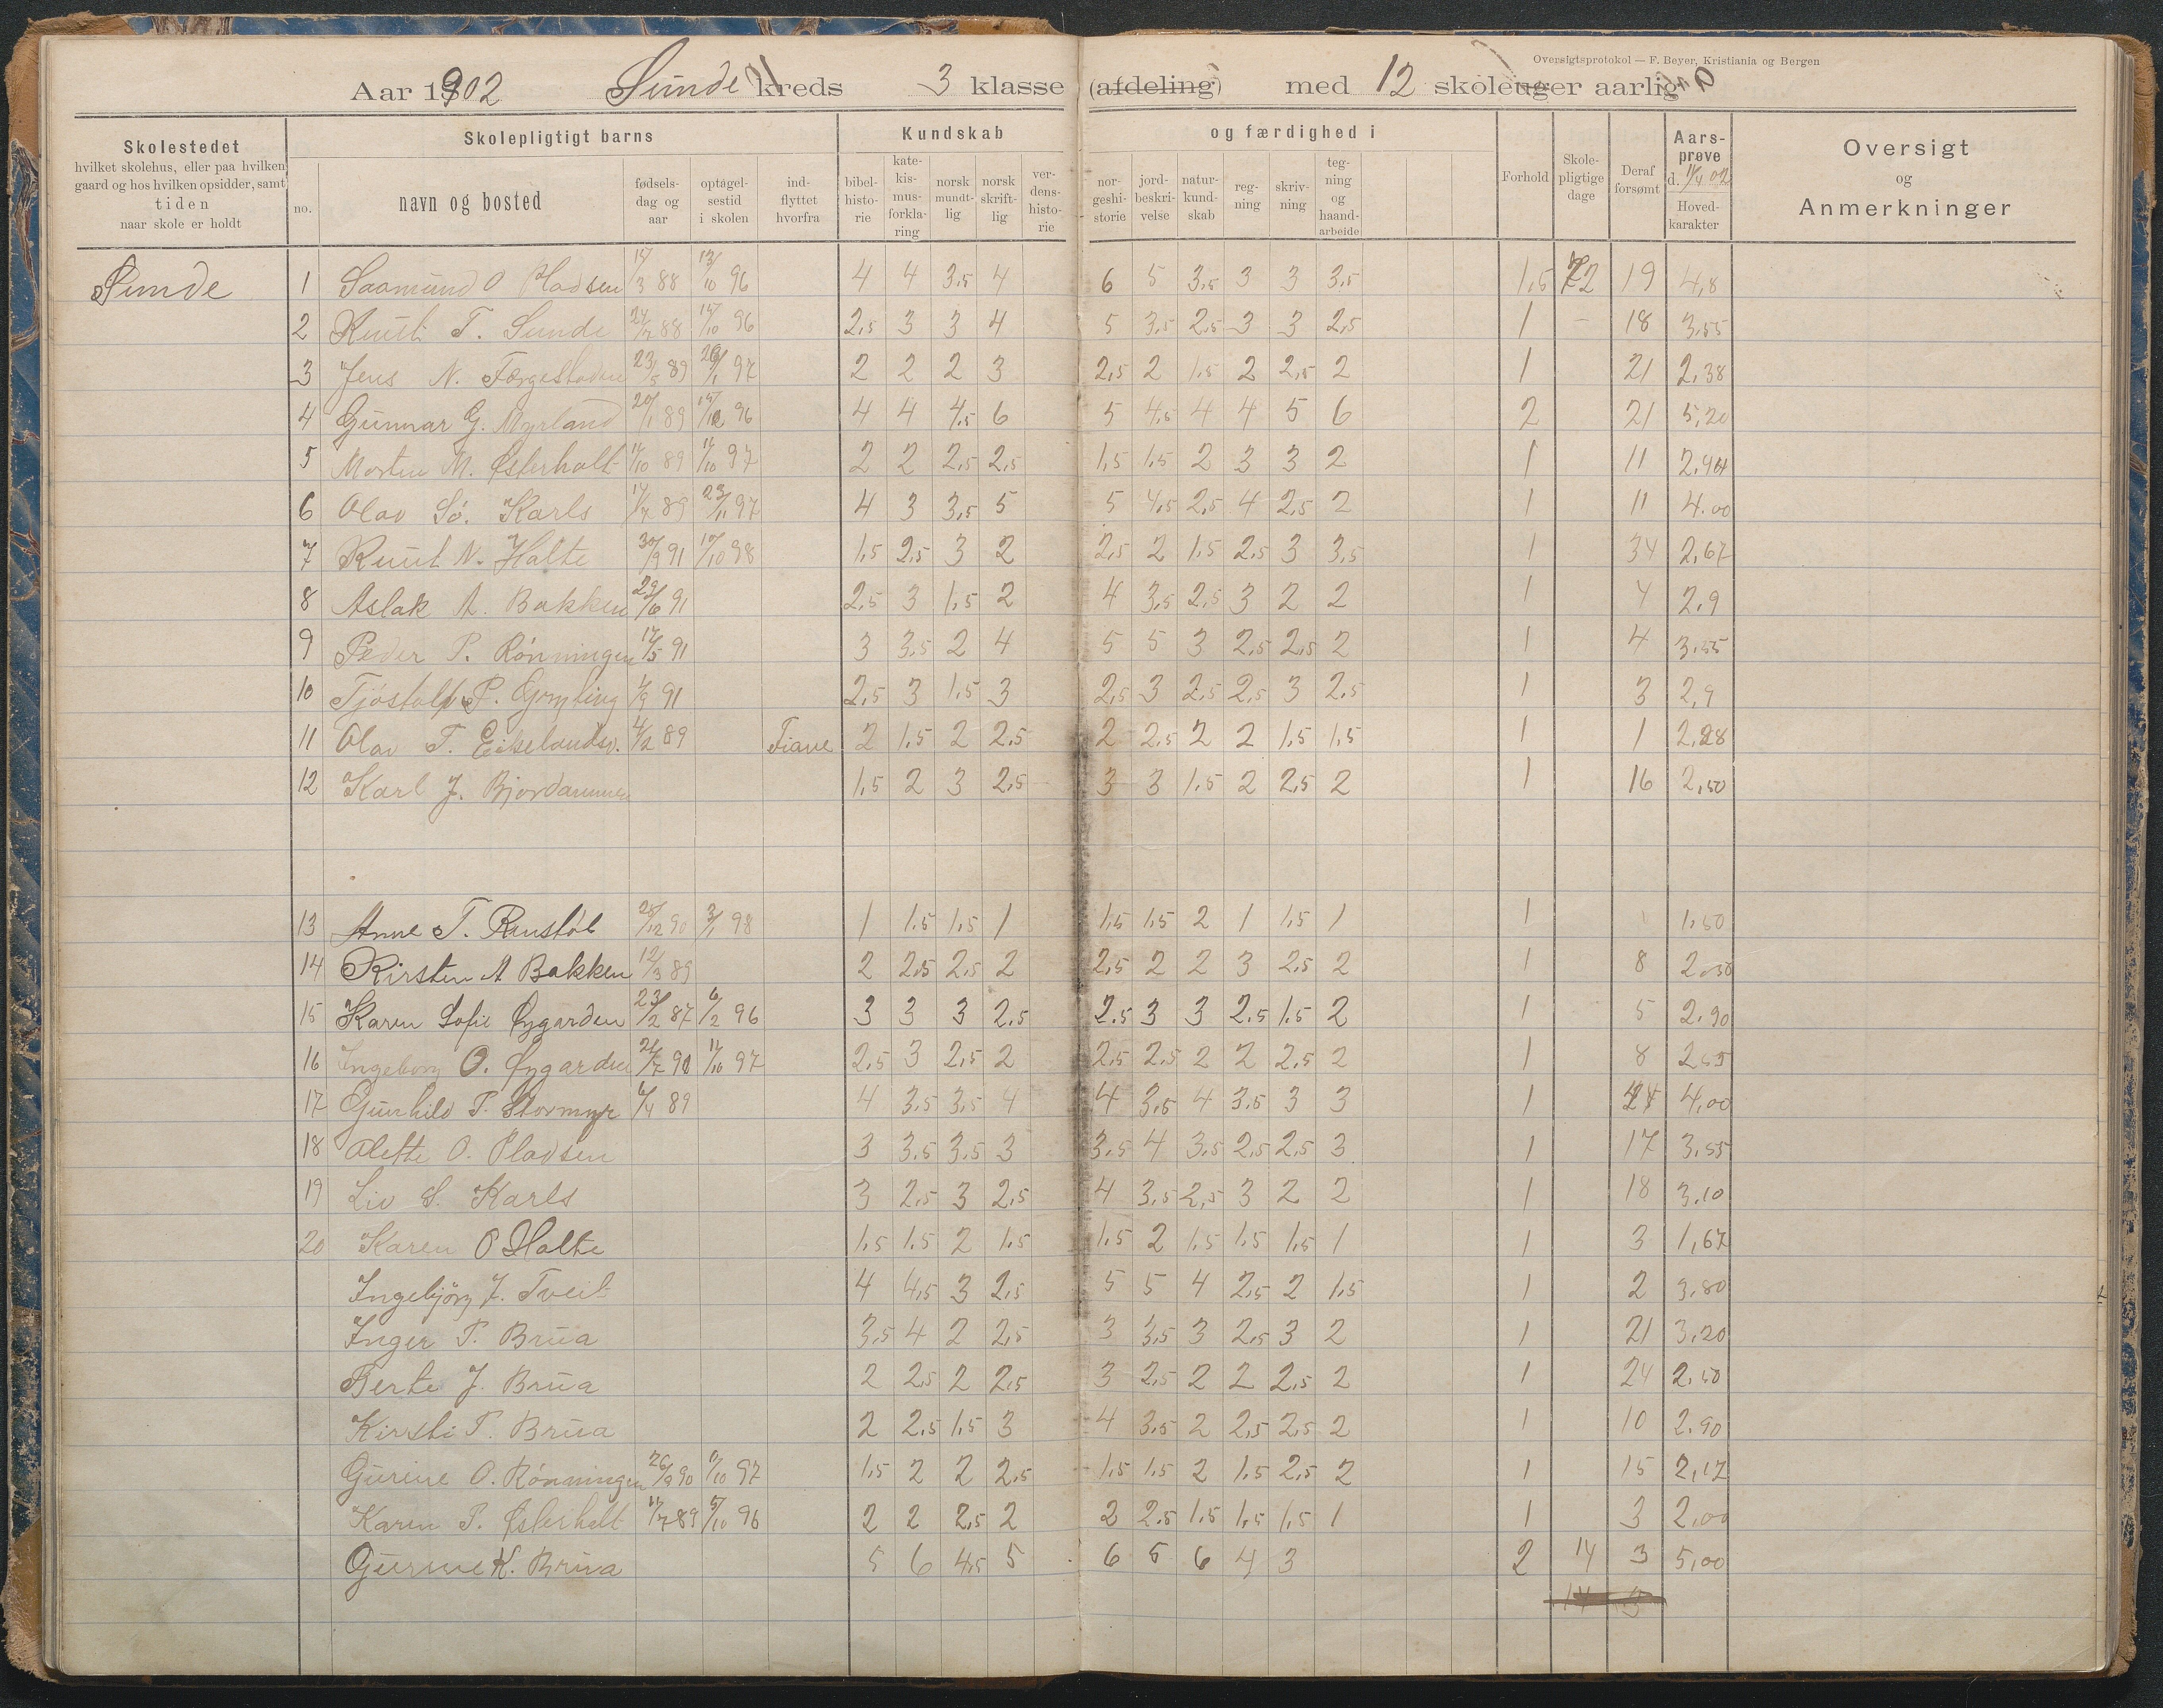 Oversigtsprotokol — F. Beyer, Kristiania og Bergen
Aar 1902 Sunde kreds 3 klasse (afdeling) med 12 skoleuger aarlig
Skolestedet hvilket skolehus, eller paa hvilken gaard og hos hvilken opsidder, samt tiden naar skole er holdt
Skolepligtigt barns
no. navn og bosted fødsels-dag og aar optagel-sestid i skolen ind-flyttet hvorfra
Kundskab og færdighed i
bibel-histo-rie kate-kis-mus-forkla-ring norsk mundt-lig norsk skrift-lig ver-dens-histo-rie nor-geshi-storie jord-beskri-velse natur-kund-skab reg-ning skriv-ning teg-ning og haand-arbeide
Forhold Skole-pligtige dage Deraf forsømt Aars-prøve d. 11/4 02 Hoved-karakter
Oversigt og Anmerkninger
Sunde 1 Saamund O Pladsen 15/3 88 13/10 96 4 4 3,5 4 6 5 3,5 3 3 3,5 1,5 72 19 4,8
2 Knut T. Sunde 24/7 88 14/10 96 2,5 3 3 4 5 3,5 2,5 3 3 2,5 1 – 18 3,55
3 Jens N. Færgestaden 23/5 89 26/1 97 2 2 2 3 2,5 2 1,5 2 2,5 2 1 21 2,38
4 Gunnar G. Myrland 20/1 89 96 4 4 4,5 6 5 4,5 4 4 5 6 2 21 5,20
5 Morten M. Østerholt 11/10 89 11/10 97 2 2 2,5 2,5 1,5 1,5 2 3 3 2 1 11
6 Olav Sø. Karls 14/7 89 23/11 97 4 3 3,5 5 5 4,5 2,5 4 2,5 2 1 11 4.00
7 Knut N. Halte 30/9 91 10/10 98 1,5 2,5 3 2 2,5 2 1,5 2,5 3 3,5 1 34 2,67
8 Aslak A. Bakken 29/6 91 2,5 3 1,5 2 4 3,5 2,5 3 2 2 1 4 2,9
9 Peder P. Rønningen 17/5 91 3 3,5 2 4 5 5 3 2,5 2,5 2 1 4 3,55
10 Tjøstolf P. Gryting 1/9 91 2,5 3 1,5 3 2,5 3 2,5 2,5 3 2,5 1 3 2,9
11 Olav T. Eikelandsv. 4/2 89 Fiane 2 1,5 2 2,5 2 2,5 2 2 1,5 1,5 1 1 2,28
12 Karl J. Bjordammen 1,5 2 3 2,5 3 3 1,5 2 2,5 2 1 16 2,50
13 Anne T. Runstøl 25/12 90 3/1 98 1 1,5 1,5 1 1,5 1,5 2 1 1,5 1 1 1,50
14 Kirsten A Bakken 12/3 89 2 2,5 2,5 2 2,5 2 2 3 2,5 2 1 8 2,50
15 Karen Sofie Øygarden 23/2 87 6/2 96 3 3 3 2,5 2.5 3 3 2.5 1.5 2 1 5 2.90
16 Ingeborg O. Øygarden 21/7 90 11/10 97 2,5 3 2,5 2 2,5 2,5 2 2 2,5 2 1 8 2,55
17 Gunhild T. Stormyr 6/4 89 4 3,5 3,5 4 4 3,5 4 3,5 3 3 1 24 4,00
18 Alette O. Pladsen 3 3,5 3,5 3 3,5 4 3,5 2,5 2,5 3 1 17 3,55
19 Liv S. Karls 3 2,5 3 2,5 4 3,5 2,5 3 2 2 1 18 3,10
20 Karen O Halte 1,5 1,5 2 1,5 1,5 2 1,5 1,5 1,5 1 1 3 1,67
Ingebjørg J. Tveit 4 4,5 3 2,5 5 5 4 2,5 2 1,5 1 2 3,80
Inger T. Brua 3,5 4 2 2,5 3 3,5 3 2,5 3 2 1 21 3,20
Berte J. Brua 2 2,5 2 2,5 3 2,5 2 2 2,5 2 1 24 2,50
Kirsti T. Brua 2 2,5 1,5 3 4 3,5 2 2,5 2,5 2 1 10 2,90
Gurine O. Rønningen 26/9 90 11/10 97 1,5 2 2 2,5 1,5 1,5 2 1,5 2,5 2 1 15 2,17
Karen P. Østerholt 11/7 89 5/10 96 2 2 2,5 2 2 2,5 1,5 1,5 1,5 1 1 3 2,00
Gurine K. Brua 5 6 4,5 5 6 5 6 4 3 2 14 3 5,00
14 3